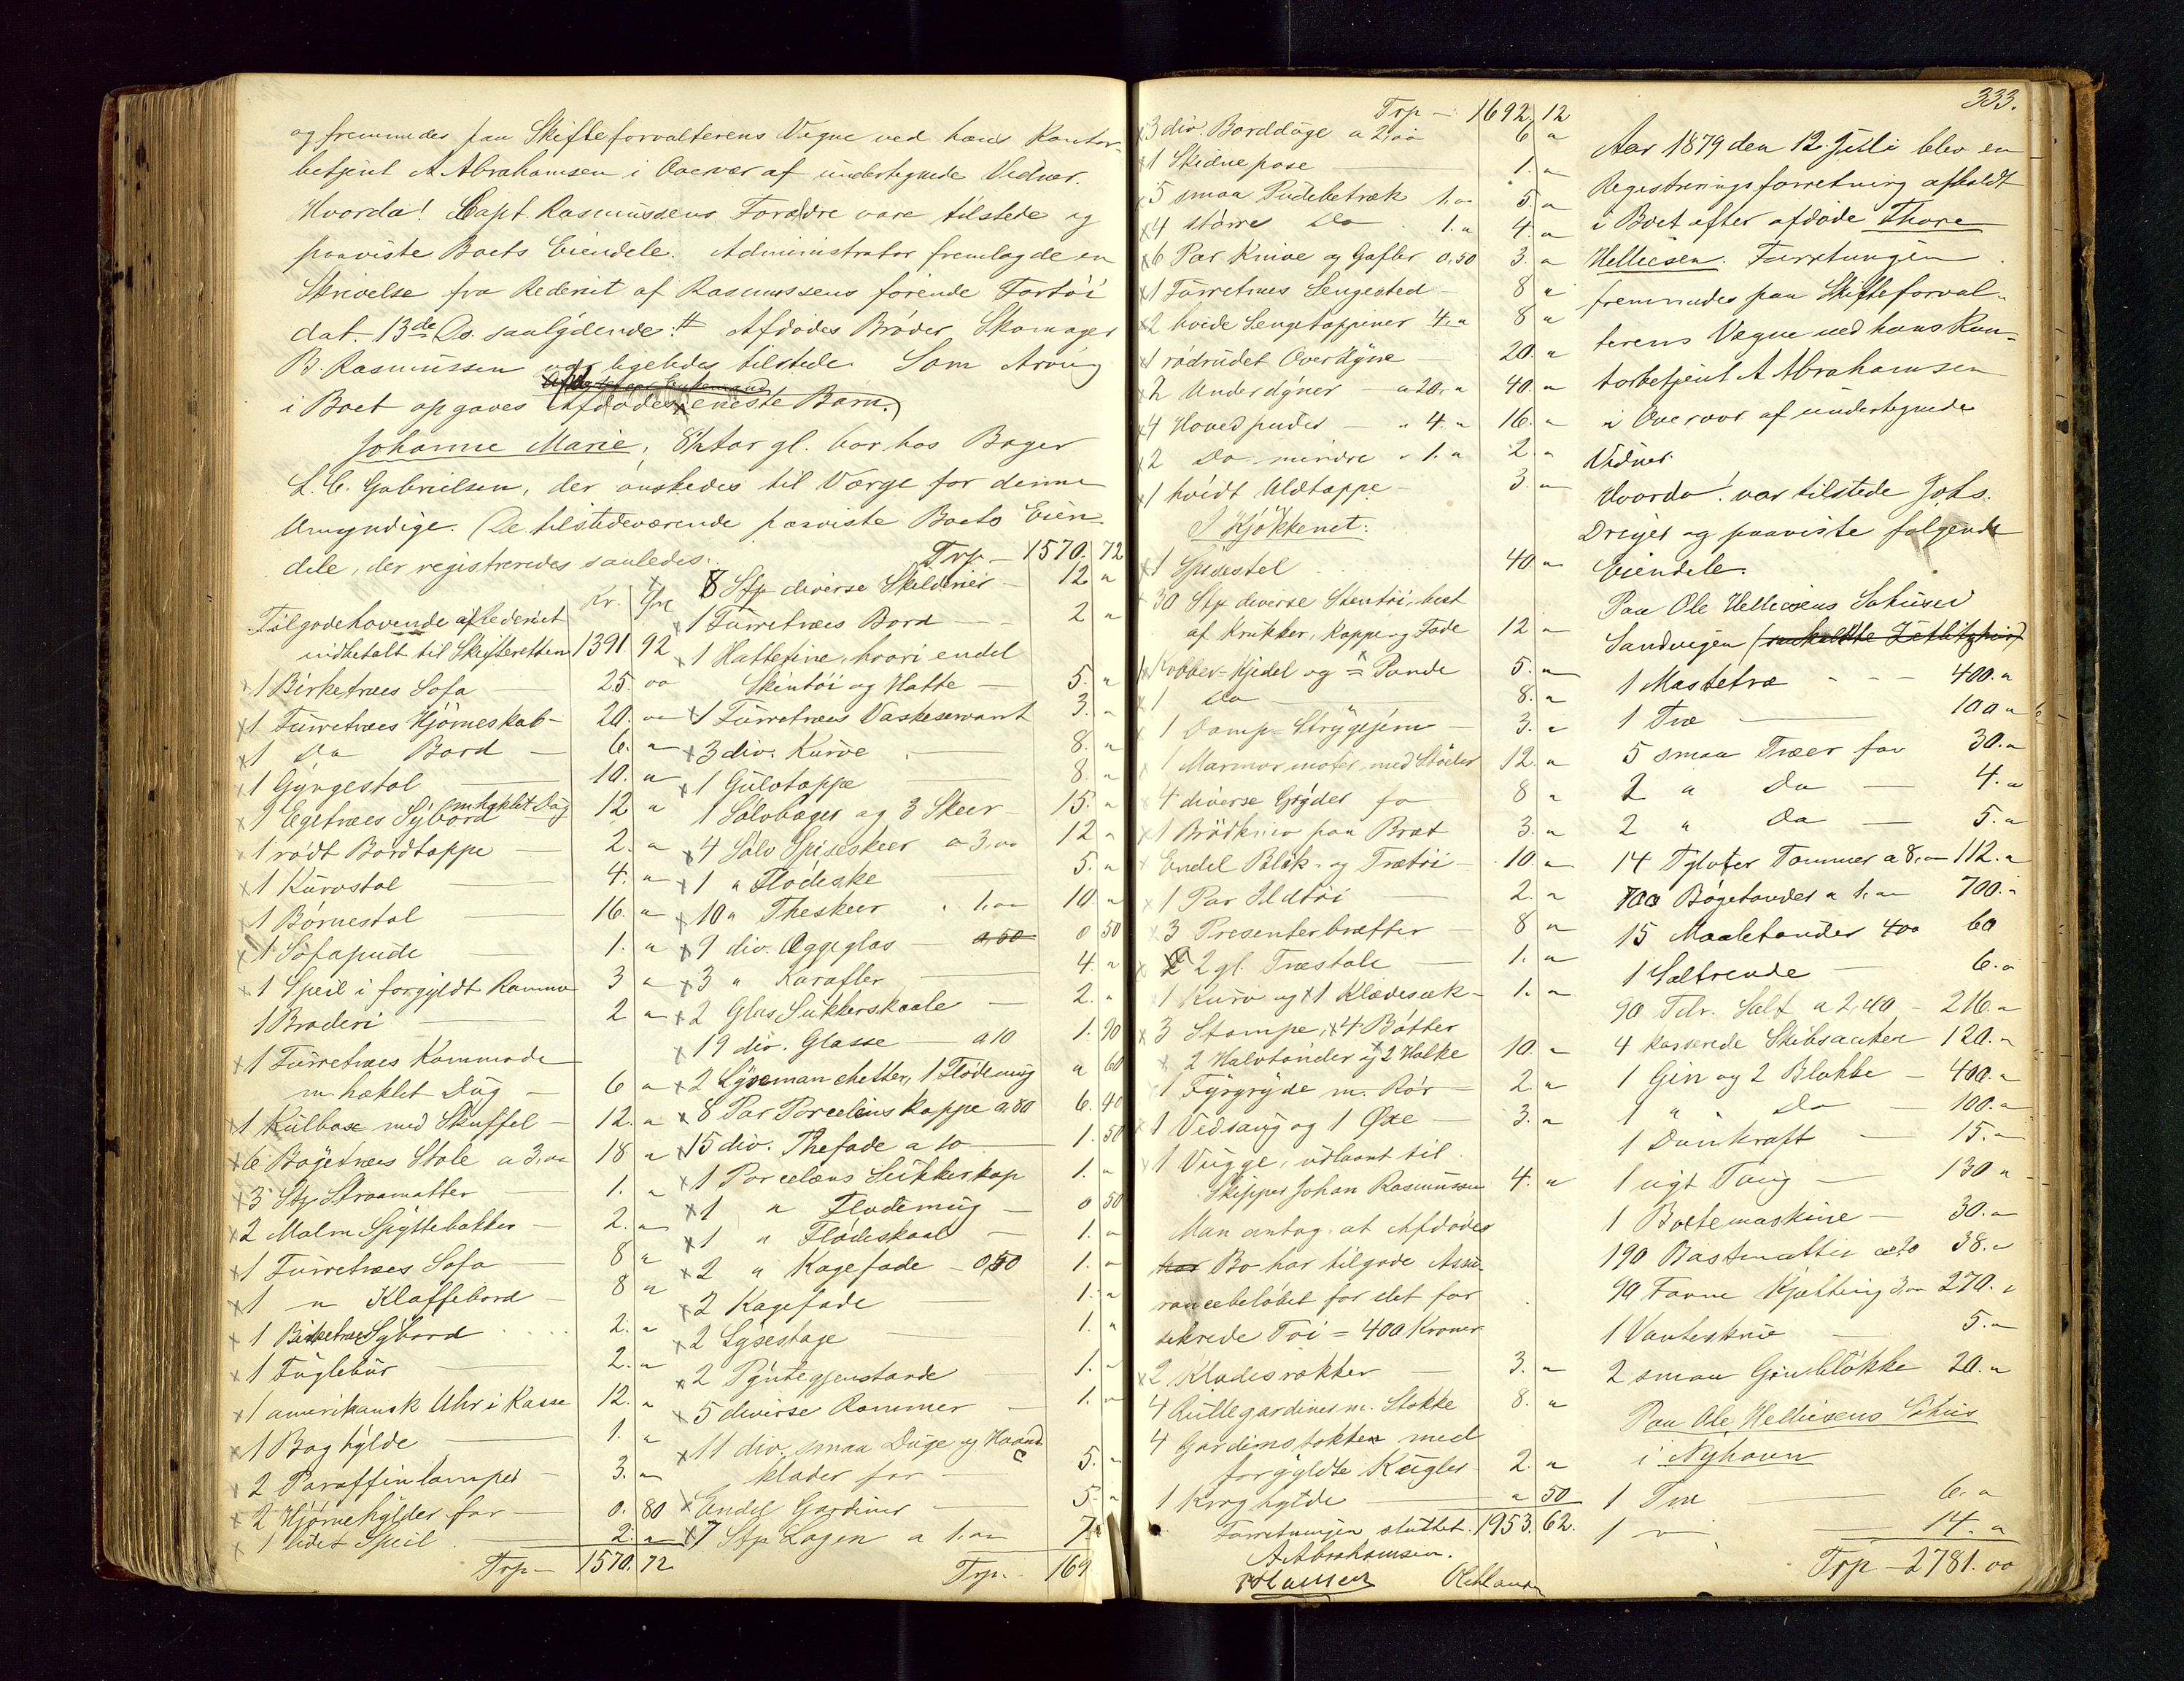 og fremmedes paa Skifteforvalterens Vegne ved hans Kontor-
betjent A Abrahamsen i Overvær af undertegnede Vidner.
Hvorda! Capt. Rasmussens Forældre vare tilstede og
paaviste Boets Eiendele. Administrator fremlagde en
Skrivelse fra Rederiet af Rasmussens førende Fartøi
dat. 13de Ds. saalydende: # Afdødes Broder, Skomager
B. Rasmussen var ligeledes tilstede Som Arving
i Boet opgaves Afdødes eneste Barn.
Johanne Marie, 8½ Aar gl. bor hos Bager
L. C. Gabrielsen, der ønskedes til Værge for denne
Umyndige. De tilstedeværende paaviste Boets Eien-
dele, der registreredes saaledes:
Kr. Øre
Tilgodehavende af Rederiet
indbetalt til Skifteretten 1391. 92
1 Birketræes Sofa — 25. 00
x1 Furretræes Hjørneskab — 20. 00
x1 Do Bord — 6. "
x1 Gyngestol — 10. "
x1 Egetræes Sybord m hæklet Dug 12 "
x1 rødt Bordtæppe — 2. "
x1 Kurvstol — 4. "
x1 Børnestol — 16. "
x1 Sofapude — 1. "
x1 Speil i forgyldt Ramme 3 "
1 Broderi — 2 "
x1 Furretræes Kommode
m. hæklet Dug — 6 "
x1 Kulbaxe med Skuffel — 12. "
x6 Bøgetræes Stole a 3.00 18 "
x3 Stp Straamatter 1. "
x2 Malm Spyttebakker — 2. "
x1 Furretræes Sofa — 8 "
x1 " Klaffebord — 8 "
x1 Birketræes Sybord 2. "
x1 Fuglebur — 2. "
x1 amerikansk Uhr i Kasse 12. "
x1 Baghylde — 1. "
x2 Paraffinlamper — 3. "
x2 Hjørnehylder for — 0. 80
x1 lidet Speil — 2. "
Trp — 1570. 72
Trp — 1570. 72
x 8 Stp diverse Skilderier — 12 "
x1 Furretræes Bord — 2 "
x1 Hatteeine, hvori endel
Skintøi og Hatte — 5. "
x1 Furretræes Vaskeservant 3. "
x3 div. Kurve — 8. "
x1 Gulvtæppe — 8. "
1 Sølvbæger og 3 Skeer — 15. "
x4 Sølv Spiseskeer a 3,00 12 "
x1 " Flødeske 5. "
x10 " Theskeer " 1.00 10. "
x9 div. Æggeglas 0,50 0 50
x3 " Karafler — 4. "
x2 Glas Sukkerskaale — 2. "
x19 div. Glasse — a 10 1. 90
x2 Lysemanchetter, 1 Flødemug " 60
x8 Par Porcelains Kopper a 80 6. 40
x15 div. Thefade a 10 1. 50
x1 Porcelæns Sukkerkop 1. "
x1 " Flødemug — 0 50
x1 " Flødeskaal — 1. "
x2 " Kagefade — 0,50 1. "
x2 Kagefade — 1. "
x2 Lysestage — 1. "
x2 Pyntegjenstande — 1. "
x5 diverse Rammer — 1. "
x11 div. smaa Duge og Haand-
klæder for — 5. "
xEndel Gardiner — 5. "
x7 Stp Lagen a 1.00 7
Trp. 169
Trp — 1692. 12
x3 div. Bordduge a 2,00 6 "
x1 Skindpose — 1. "
x5 smaa Pudebetræk 1.00 5. "
x4 større Do 1. " 4. "
x6 Par Knive og Gafler 0,50 3. "
x1 Furretræes Sengested — 8 "
x2 hvide Sengetæpper 4. " 8 "
x1 rødrudet Overdyne — 20. "
x2 Underdyner a 20. " 40. "
x4 Hovedpuder — " 4. " 16. "
x2 Do mindre " 1. " 2. "
x1 hvidt Uldtæppe — 3. "
I Kjøkkenet:
x1 Spisestel 40 "
x30 Stp diverse Stentøi, best
af Krukker, Kopper og Fade 12 "
x1 Kobber-Kjedel og = Pande 5. "
x1 Do — 8. "
x1 Damp-Strygejern — 3. "
x1 Marmormorter med Støder 12. "
x4 diverse Gryder for 8 "
x1 Brødkniv paa Bræt 3. "
xEndel Blik- og Trætøi — 10. "
x1 Par Ildtøi — 2. "
x3 Presenterbrætter — 8 "
x 2 gl. Træstole — 1. "
x1 Kurv og x1 Klædesæk — 1. "
x3 Stampe, x4 Bøtter
x2 Halvtønder og x2 Holke 10. "
x1 Fyrgryde m. Rør — 2. "
x1 Vedsaug og 1 Øxe — 3. "
x1 Vugge, udlaant til
Skipper Johan Rasmussen 4. "
Man antog at Afdødes
har Bo har tilgode Assu-
rancebeløbet for det for
sikrede Tøi = 400 Kroner
x2 Kladesrækker — 3. "
4 Rullegardiner m. Stokke 8. "
4 Gardinstokke med
forgyldte Kugler 2. "
1 Kroghylde — " 50
Forretningen sluttet. 1953. 62.
A Abrahamsen.
333.
Aar 1879 den 12. Juli blev en
Registreringsforretning afholdt
i Boet efter afdøde Thore
Helliesen. Forretningen
fremmedes paa Skifteforval-
terens Vegne ved hans Kon-
torbetjent A Abrahamsen
i Overvær af undertegnede
Vidner.
Hvorda! var tilstede Johs.
Dreyer og paaviste følgende
Eiendele.
Paa Ole Helliesens Søhuse
Sandvigen
1 Mastetræ — 400. "
1 Træ — 100 "
5 smaa Træer for 30. "
2 " Do — 4. "
2 " Do — 5. "
14 Tylvter Tømmer a 8,00 112. "
700 Bøgetønder a 1.00 700. "
15 Maaletønder 400 60
1 Saltrende — 6. "
90 Tdr. Salt a 2,40 — 216. "
4 kasserede Skibsankere 120. "
1 Gin og 2 Blokke — 400. "
1 " Do — 100. "
1 Dunkraft — 15. "
1 nyt Toug — 130 "
1 Bøtemaskine — 30. "
190 Bastmatter a 20 38. "
90 Favne Kjætting 3,00 270. "
1 Vanteskrue — 5. "
2 smaa Ginblokke 20. "
Paa Ole Helliesens Søhus
i Nyhavn
1 Træ — 6. "
1 " — 14. "
Trp — 2781. 00